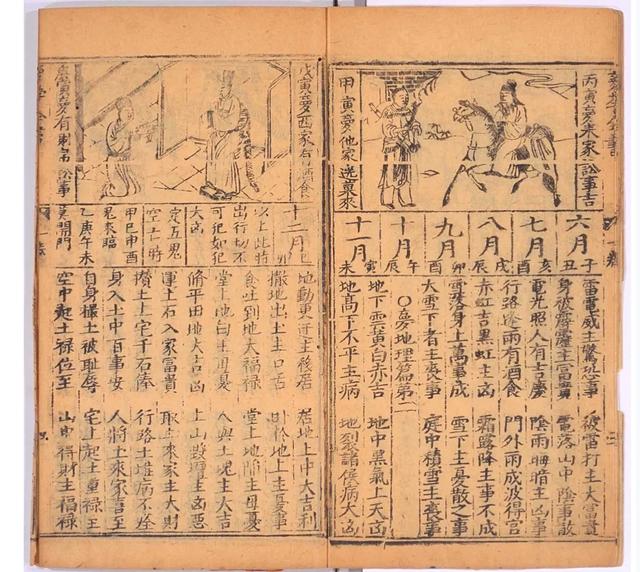 丙寅夢朱家訟事吉
甲寅夢他家送菓來
六月 子丑
七月 亥酉
八月 戌辰
九月 卯酉
十月 午辰
十一月 寅未
雷電威主驚恐事 被雷打主大富貴
身被霹靂主富貴 電落山中陰事散
電光照人有吉慶 陰雨晦暗主凶事
行路逢雨有酒食 門外雨成波得官
赤虹吉黑虹主凶 霜露降主事不成
雪落身上萬事成 雪下主憂散之事
大雪下者主喪事 庭中積雪主喪事
○夢地理篇第二
地下雲黄白赤吉 地中黑氣上天凶
地高下不平主病 地裂諸侯病大凶
戊寅夢西家有酒食
庚寅夢有財帛訟事
十二月
以上此時
出行切不
可犯如犯
大凶
定五鬼
空亡時
甲巳申酉
鬼來臨
乙庚午未
莫開門
地動更遷主移居 在地上中大吉利
撒地出土主口舌 卧於地上主憂事
食吐到地大福禄 堂上地陷主母憂
堂上地白主憂 人與土塊主大吉
脩平田地大吉 上山主凶惡
運土石入家富貴 取土來家主大財
攢土上宅千石俸 行路土堆病不痊
身入土中百事安 人將土來家喜至
自身掘土被恥辱 宅上起土重禄至
空中起土禄位至 山中得財主福禄